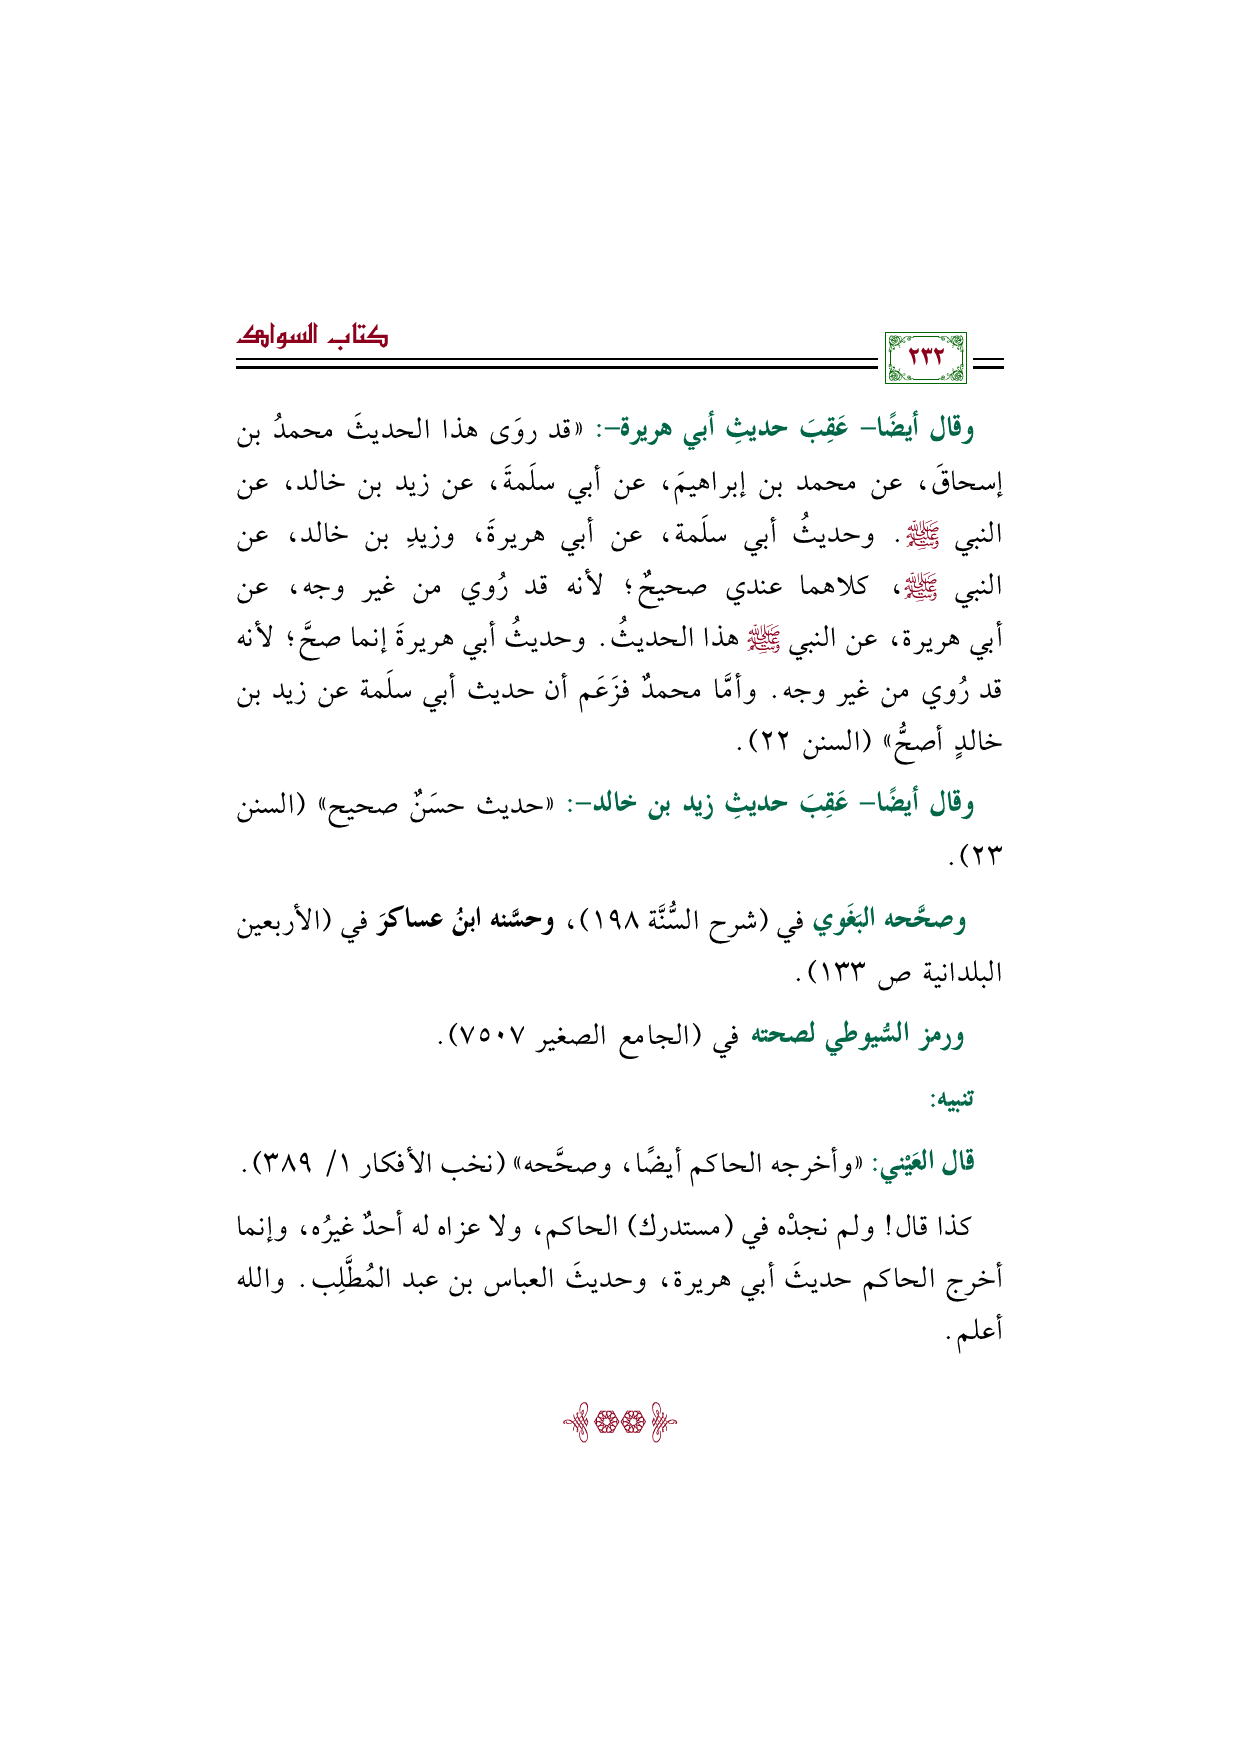 كتاب السواك
٢٣٢
وقال أيضًا- عَقِبَ حديثِ أبي هريرة-: «قد روَى هذا الحديثَ محمدُ بن
إسحاقَ، عن محمد بن إبراهيمَ، عن أبي سلَمةَ، عن زيد بن خالد، عن
النبي ﷺ. وحديثُ أبي سلَمة، عن أبي هريرةَ، وزيدِ بن خالد، عن
النبي ﷺ، كلاهما عندي صحيحٌ؛ لأنه قد رُوي من غير وجه، عن
أبي هريرة، عن النبي ﷺ هذا الحديثُ. وحديثُ أبي هريرةَ إنما صحَّ؛ لأنه
قد رُوي من غير وجه. وأمَّا محمدٌ فزَعَم أن حديث أبي سلَمة عن زيد بن
خالدٍ أصحُّ» (السنن ٢٢).
وقال أيضًا- عَقِبَ حديثِ زيد بن خالد-: «حديث حسَنٌ صحيح» (السنن
٢٣).
وصحَّحه البَغَوي في (شرح السُّنَّة ١٩٨)، وحسَّنه ابنُ عساكرَ في (الأربعين
البلدانية ص ١٣٣).
ورمز السُّيوطي لصحته في (الجامع الصغير ٧٥٠٧).
تنبيه:
قال العَيْني: «وأخرجه الحاكم أيضًا، وصحَّحه» (نخب الأفكار ١/ ٣٨٩).
كذا قال! ولم نجدْه في (مستدرك) الحاكم، ولا عزاه له أحدٌ غيرُه، وإنما
أخرج الحاكم حديثَ أبي هريرة، وحديثَ العباس بن عبد المُطَّلِب. والله
أعلم.